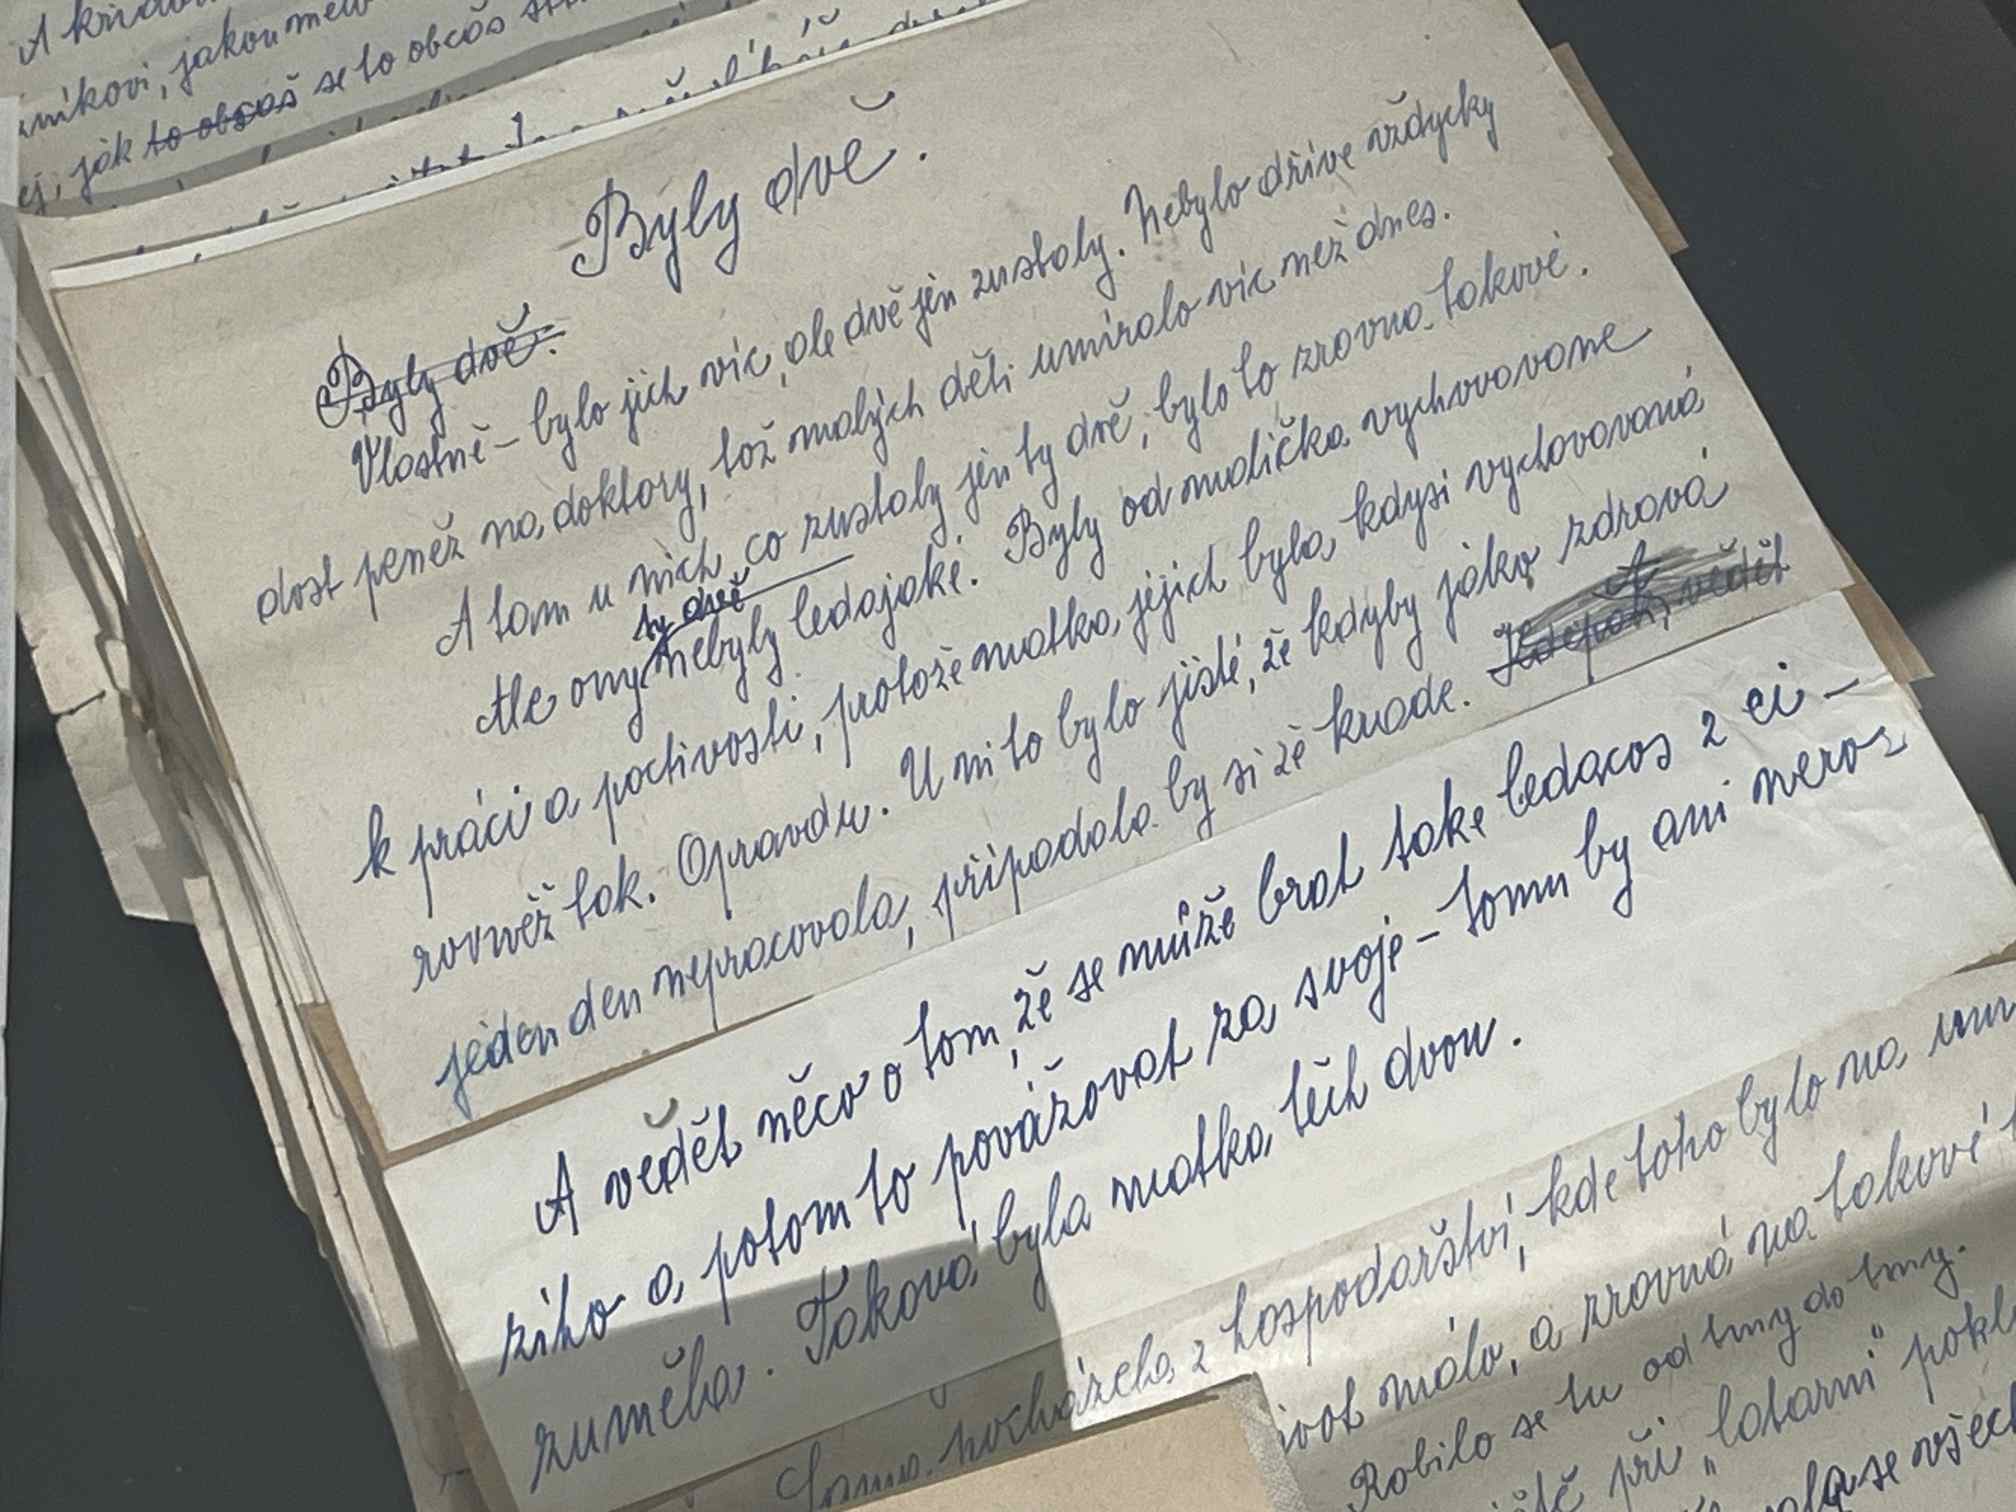 A
níkovi, jakou
ej, jak to obcoš se to obcoš
Byly dvě.
Byly dvě.
Vlastně – bylo jich víc, ale dvě jen zustaly. Nebylo dříve vždycky
dost peněz na doktory, tož malých děti umíralo víc než dnes.
A tam u nich, co zustaly jen ty dvě, bylo to zrovna takové.
ty dvě
Ale ony nebyly ledajaké. Byly od malička vychovavane
k práci a poctivosti, protože matka jejich byla kdysi vychovavaná
rovněž tak. Opravdu. U ni to bylo jisté, že kdyby jako zdravá
jeden den nepracovala, připadala by si že krade. A vědět
A vědět něco o tom, že se může brat take ledacos z ci–
ziho a potom to považovat za svoje – tomu by ani neroz
zuměla. Taková byla matka těch dvou.
Sama pocházela z hospodařství, kde toho bylo na
málo, a zrovná na takové
Robilo se tu od tmy do tmy.
při "latarni"
se všech